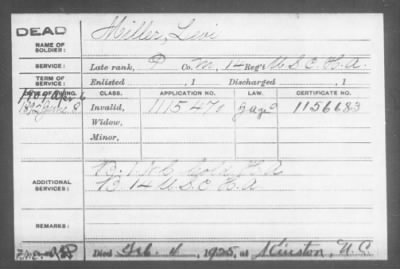 DEAD
NAME OF SOLDIER:
Miller, Levi
SERVICE:
Late rank, P Co. M, 14 Reg't U.S.C.H.A.
TERM OF SERVICE:
Enlisted , 1 Discharged , 1
CLASS. APPLICATION NO. LAW. CERTIFICATE NO.
Invalid, 1115470 1156683
Widow,
Minor,
ADDITIONAL SERVICES:
B. 14 U.S.C.H.A
REMARKS:
Died Feb. 11, 1925, at Kinston, N.C.